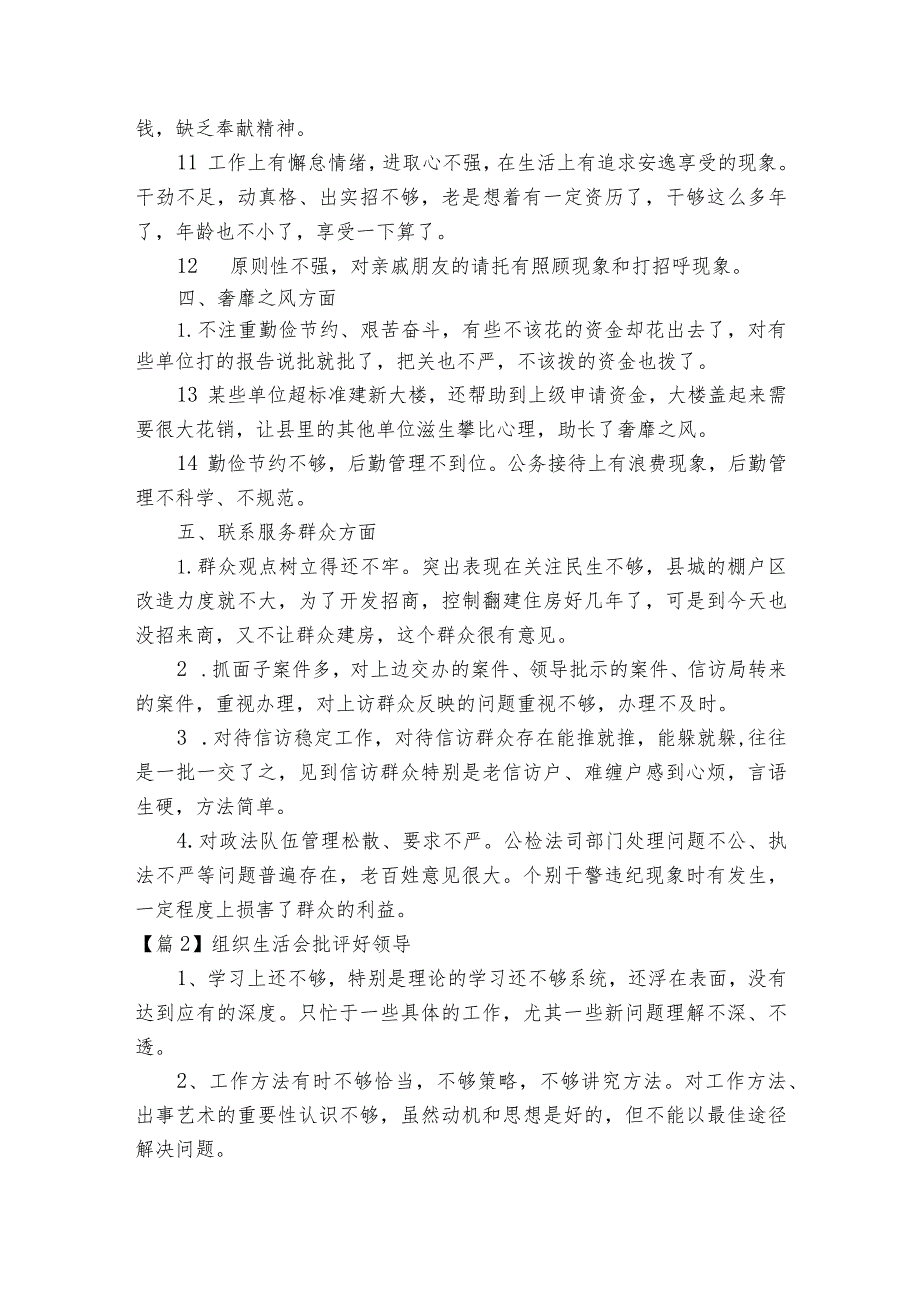 钱，缺乏奉献精神。
11 工作上有懈怠情绪，进取心不强，在生活上有追求安逸享受的现象。
干劲不足，动真格、出实招不够，老是想着有一定资历了，干够这么多年
了，年龄也不小了，享受一下算了。
12 原则性不强，对亲戚朋友的请托有照顾现象和打招呼现象。
四、奢靡之风方面
1.不注重勤俭节约、艰苦奋斗，有些不该花的资金却花出去了，对有
些单位打的报告说批就批了，把关也不严，不该拨的资金也拨了。
13 某些单位超标准建新大楼，还帮助到上级申请资金，大楼盖起来需
要很大花销，让县里的其他单位滋生攀比心理，助长了奢靡之风。
14 勤俭节约不够，后勤管理不到位。公务接待上有浪费现象，后勤管
理不科学、不规范。
五、联系服务群众方面
1.群众观点树立得还不牢。突出表现在关注民生不够，县城的棚户区
改造力度就不大，为了开发招商，控制翻建住房好几年了，可是到今天也
没招来商，又不让群众建房，这个群众很有意见。
2 .抓面子案件多，对上边交办的案件、领导批示的案件、信访局转来
的案件，重视办理，对上访群众反映的问题重视不够，办理不及时。
3 .对待信访稳定工作，对待信访群众存在能推就推，能躲就躲,往往
是一批一交了之，见到信访群众特别是老信访户、难缠户感到心烦，言语
生硬，方法简单。
4.对政法队伍管理松散、要求不严。公检法司部门处理问题不公、执
法不严等问题普遍存在，老百姓意见很大。个别干警违纪现象时有发生，
一定程度上损害了群众的利益。
【篇2】组织生活会批评好领导
1、学习上还不够，特别是理论的学习还不够系统，还浮在表面，没有
达到应有的深度。只忙于一些具体的工作，尤其一些新问题理解不深、不
透。
2、工作方法有时不够恰当，不够策略，不够讲究方法。对工作方法、
出事艺术的重要性认识不够，虽然动机和思想是好的，但不能以最佳途径
解决问题。